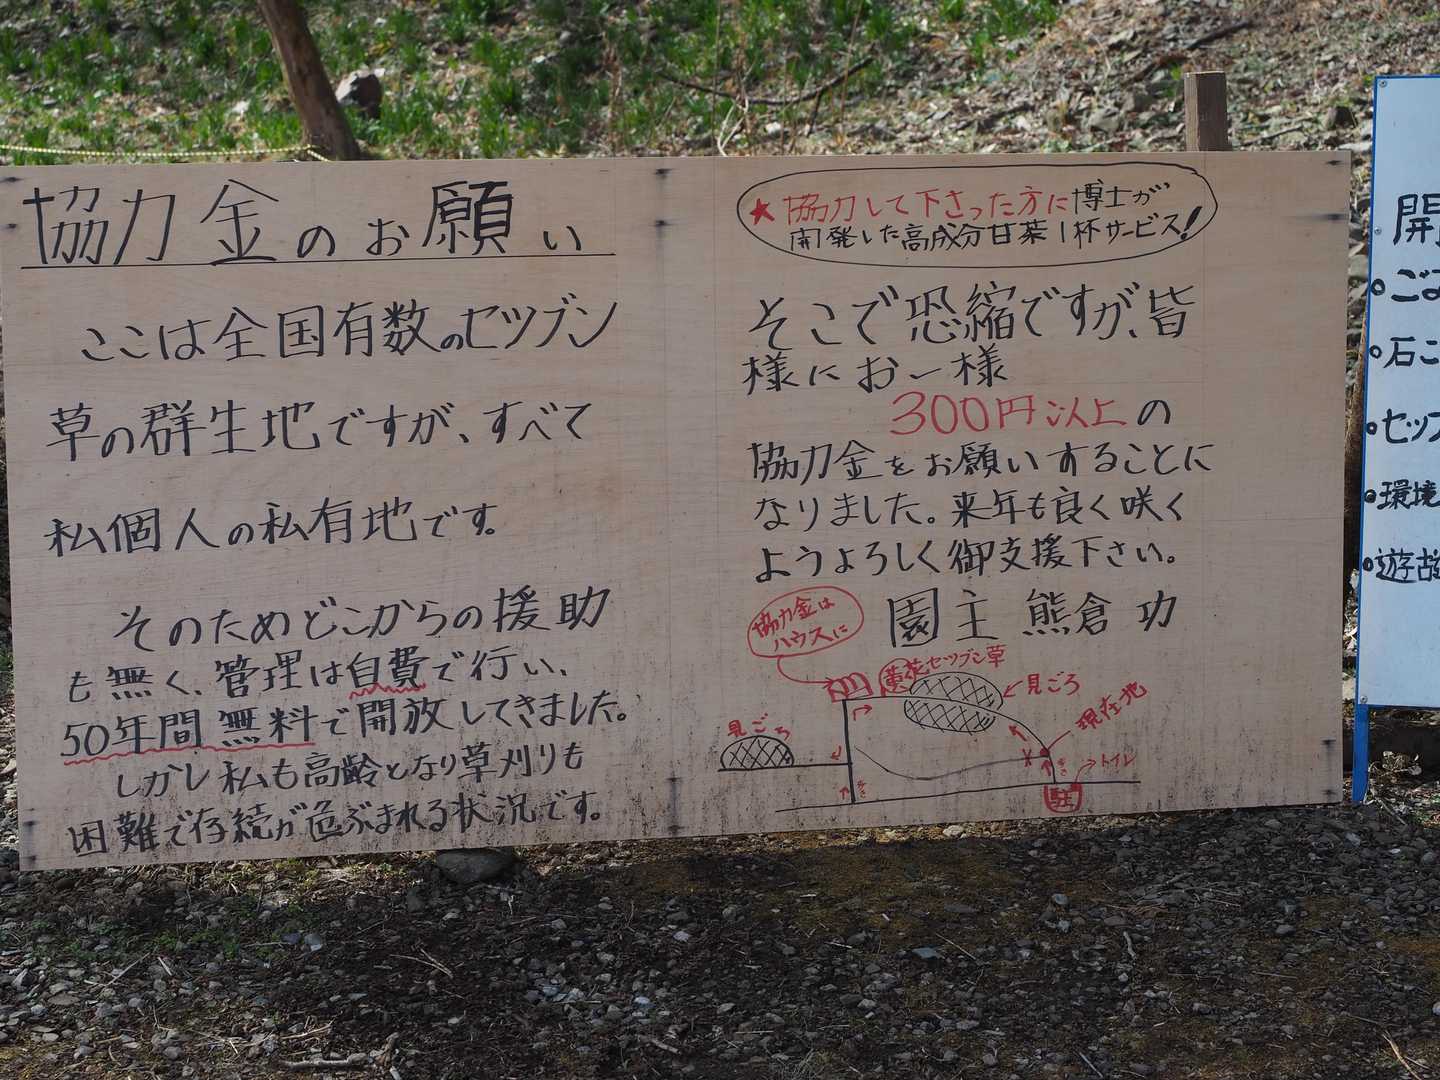 協力金のお願い
ここは全国有数のセツブン
草の群生地ですが、すべて
私個人の私有地です。
そのためどこからの援助
も無く、管理は自費で行い、
50年間無料で開放してきました。
しかし私も高齢となり草刈りも
困難で存続が危ぶまれる状況です。
★協力して下さった方に博士が
開発した高成分甘茶1杯サービス!
そこで恐縮ですが、皆
様にお一様
300円以上の
協力金をお願いすることに
なりました。来年も良く咲く
ようよろしく御支援下さい。
園主 熊倉 功
協力金は
ハウスに
セツブン草
見ごろ
見ごろ
現在地
トイレ
開
ごみ
石こ
セツブ
環境
遊